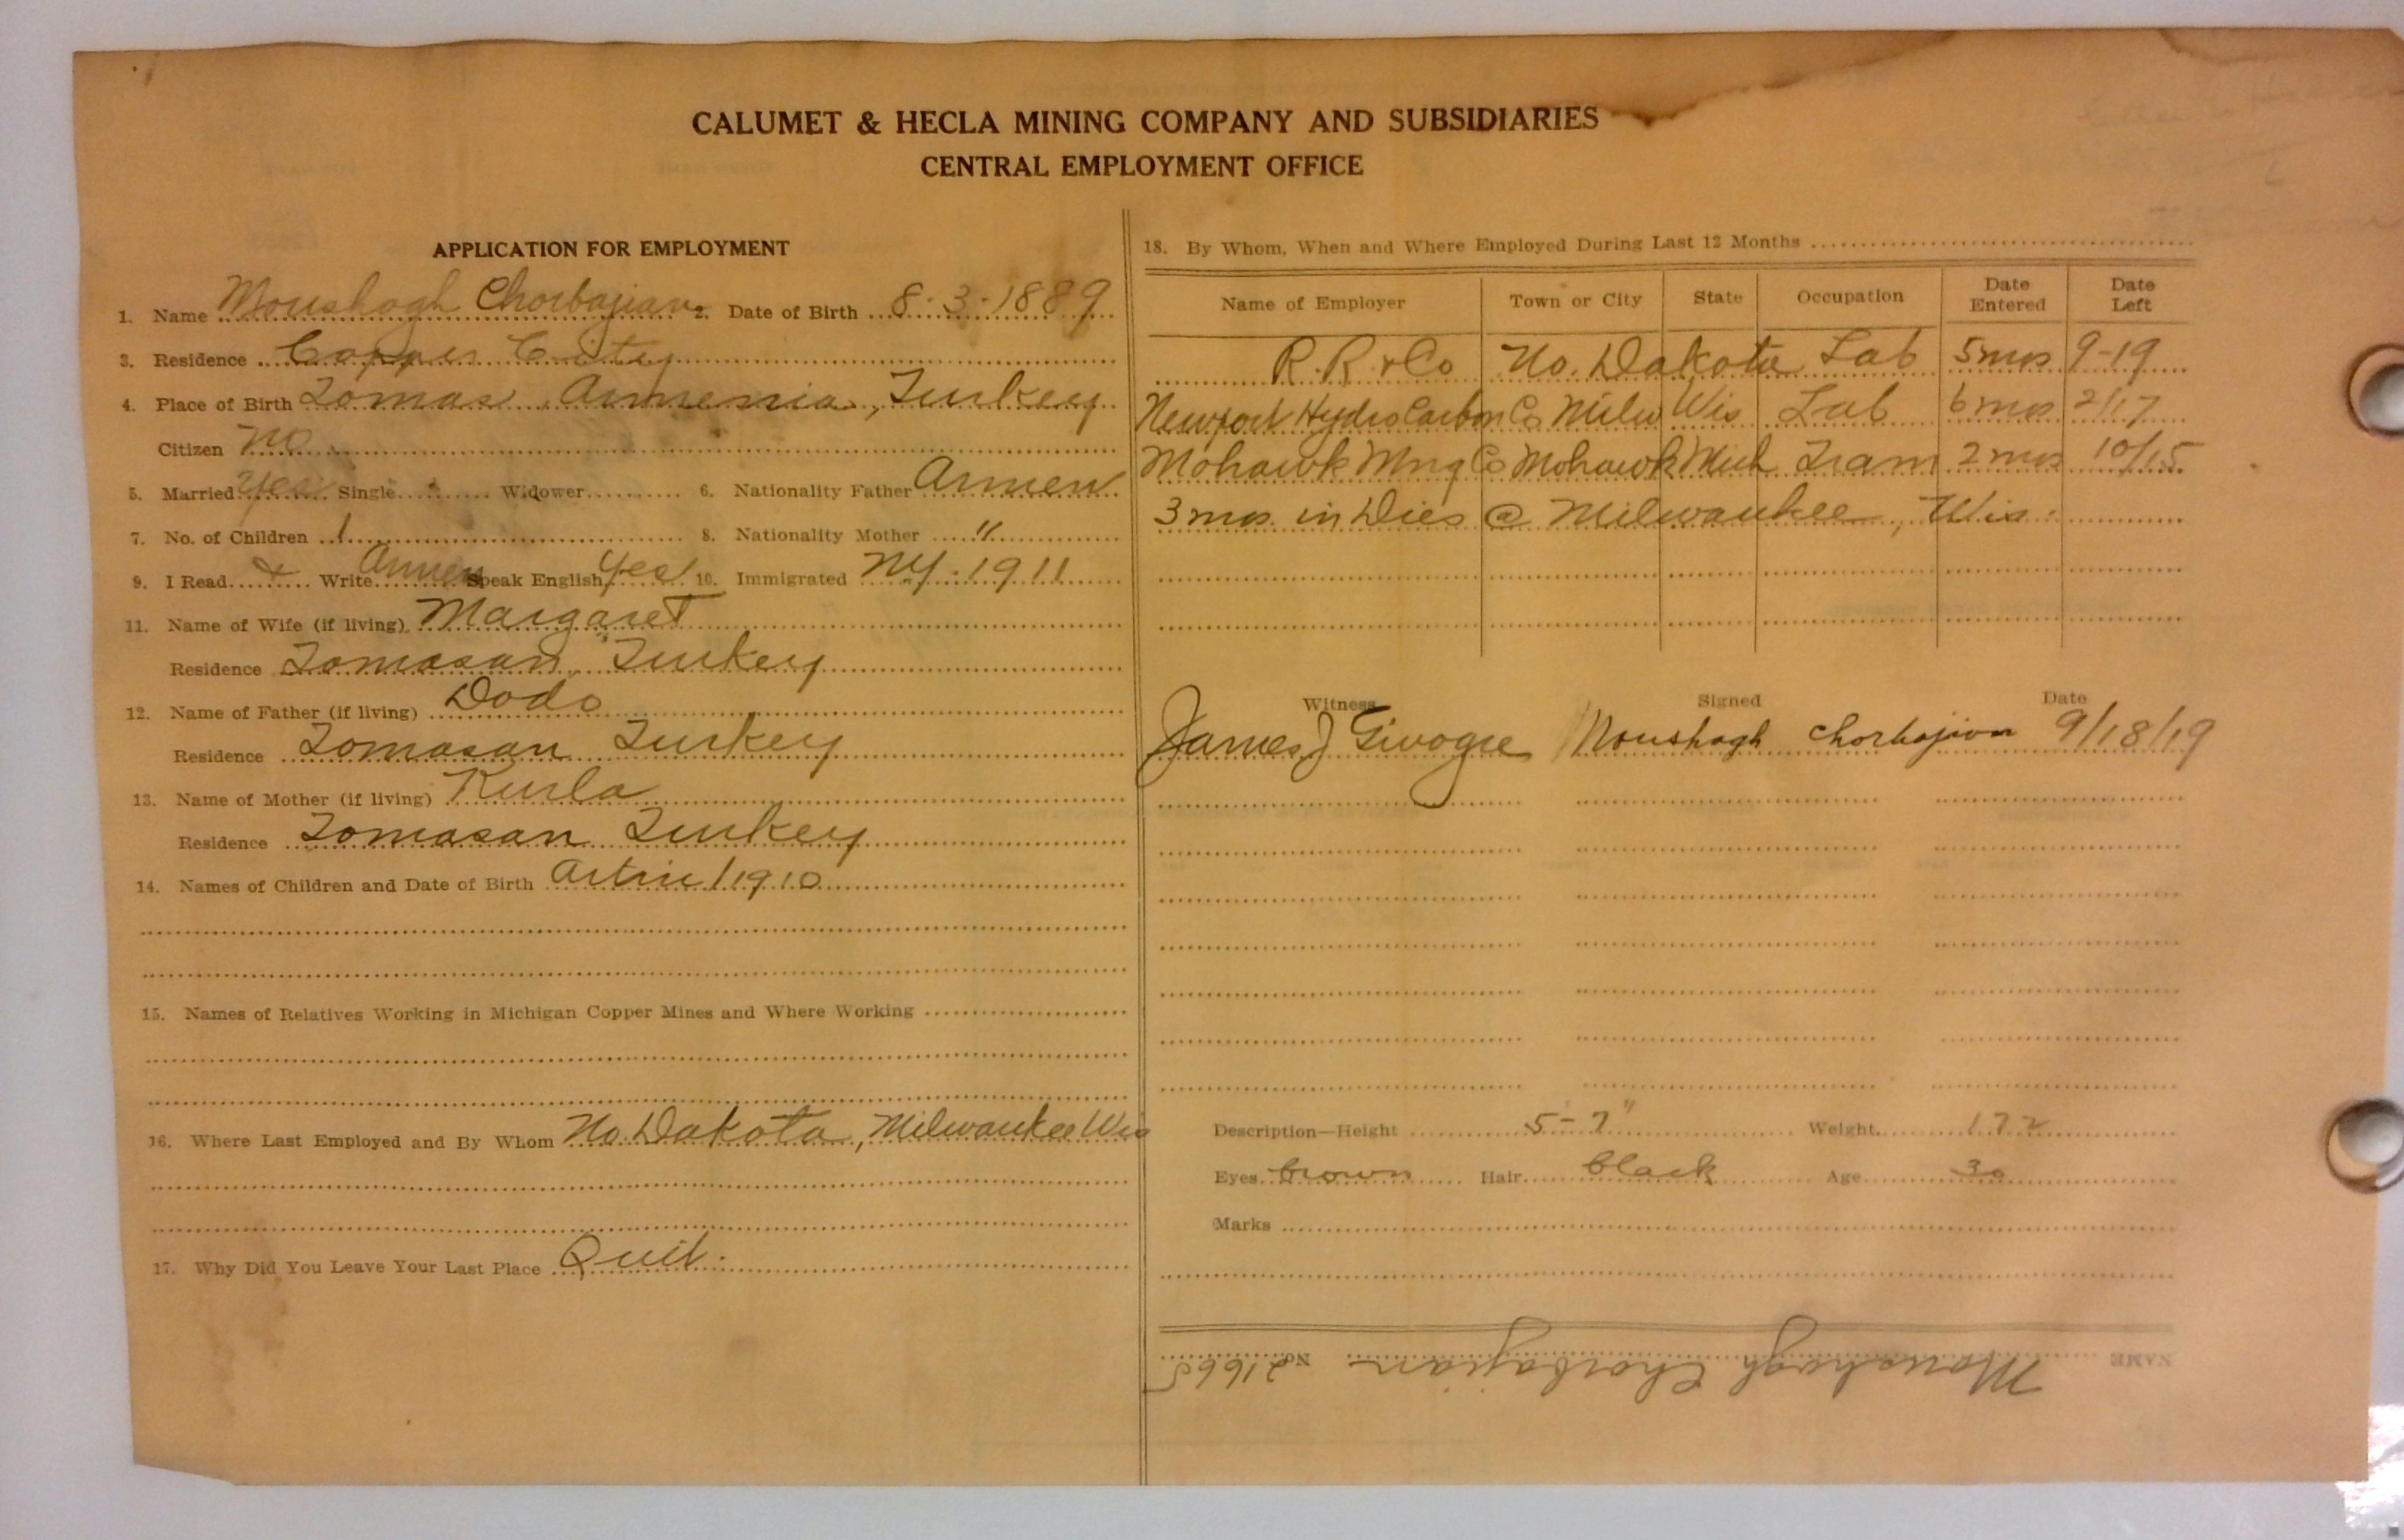 CALUMET & HECLA MINING COMPANY AND SUBSIDIARIES
CENTRAL EMPLOYMENT OFFICE
APPLICATION FOR EMPLOYMENT
1. Name Moushagh Chorbajian 2. Date of Birth 8-3-1889
3. Residence Copper City
4. Place of Birth Tomas, Armenia, Turkey
Citizen no
5. Married yes Single Widower 6. Nationality Father Armen
7. No. of Children 1 8. Nationality Mother "
9. I Read & Write Armen Speak English yes 10. Immigrated NY-1911
11. Name of Wife (if living) Margaret
Residence Tomasan, Turkey
12. Name of Father (if living) Dodo
Residence Tomasan Turkey
13. Name of Mother (if living) Kurla
Residence Tomasan Turkey
14. Names of Children and Date of Birth 1910
15. Names of Relatives Working in Michigan Copper Mines and Where Working
16. Where Last Employed and By Whom No. Dakota, Milwaukee Wis
17. Why Did You Leave Your Last Place Quit.
18. By Whom, When and Where Employed During Last 12 Months
Name of Employer Town or City State Occupation Date Entered Date Left
R.R. & Co No. Dakota Lab 5 mos 9-19
Newport HydroCarbon Co Milw Wis Lab 6 mos 2/17
Mohawk Mng Co Mohawk Mich Tram 2 mos 10/15
3 mos. in Dies @ Milwaukee, Wis.
Witness Signed Date
James J Moushagh Chorbajian 9/18/19
Description—Height 5'-7" Weight 172
Eyes brown Hair black Age 30
Marks
NAME Moushagh Chorbajian No. 21665